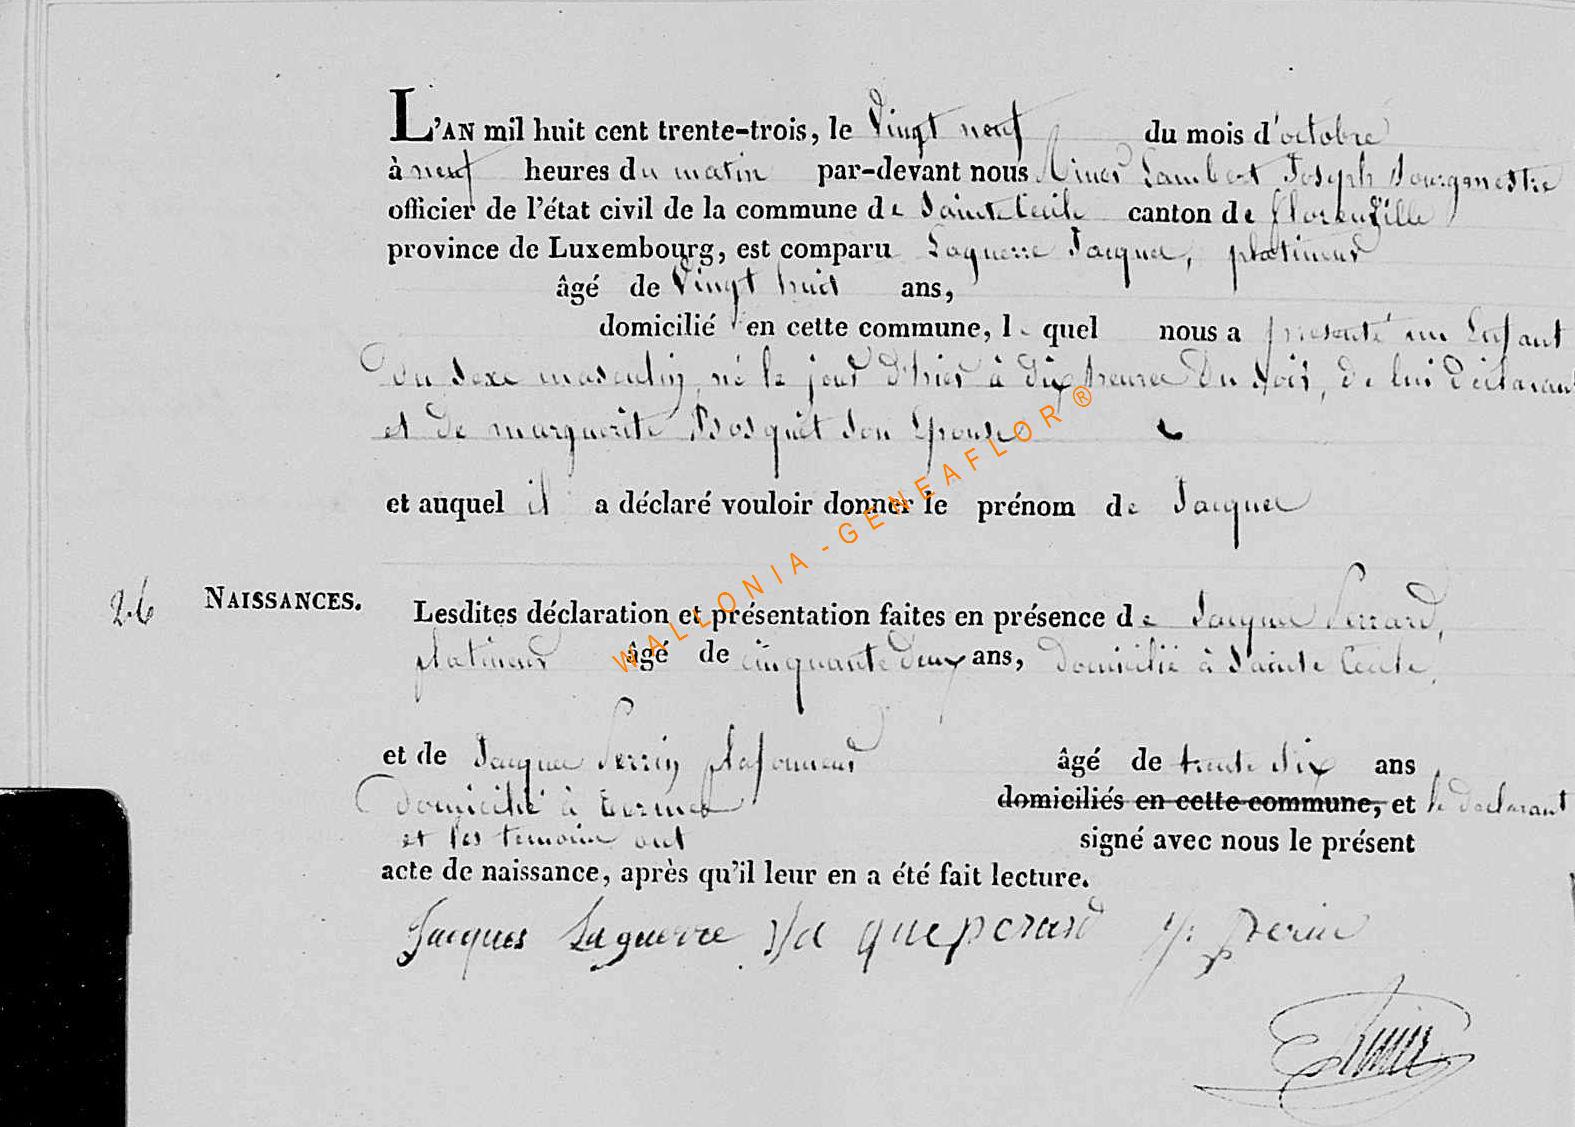 L'AN mil huit cent trente-trois, le Vingt neuf du mois d'octobre
à neuf heures du matin par-devant nous Lambert Joseph Bourgmestre
officier de l'état civil de la commune de Sainte Cécile canton de florenville
province de Luxembourg, est comparu Laguerre Jacques, platineur
âgé de Vingt huit ans,
domicilié en cette commune, lequel nous a présenté un Enfant
du sexe masculin, né le jour d'hier à dix heures du soir, de lui déclarant
et de marguerite Bosquet son Epouse
et auquel il a déclaré vouloir donner le prénom de Jacques
26 NAISSANCES.
Lesdites déclaration et présentation faites en présence de Jacques Perrard,
platineur âgé de cinquante deux ans, domicilié à Sainte Cécile,
et de Jacques Perrin plafonneur âgé de trente six ans,
domicilié à termes domiciliés en cette commune, et le déclarant
et les temoins ont signé avec nous le présent
acte de naissance, après qu'il leur en a été fait lecture.
Jacques Laguerre Jacque perard J: perin
WALLONIA - GENEAFLOR ®